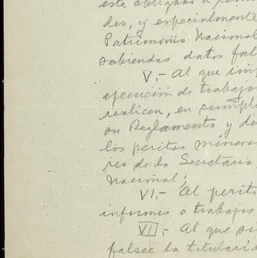 este obligado a
dos, y especialmente
Patrimonio Nacional
sabiendas datos fal
V.- Al que imp
ejecución de trabajo
realicen, en cumpl
su Reglamento y de
los peritos mineros
res de la Secretaria
Nacional;
VI.- Al perito
informes o trabajos
VII.- Al que
falsee la titularid